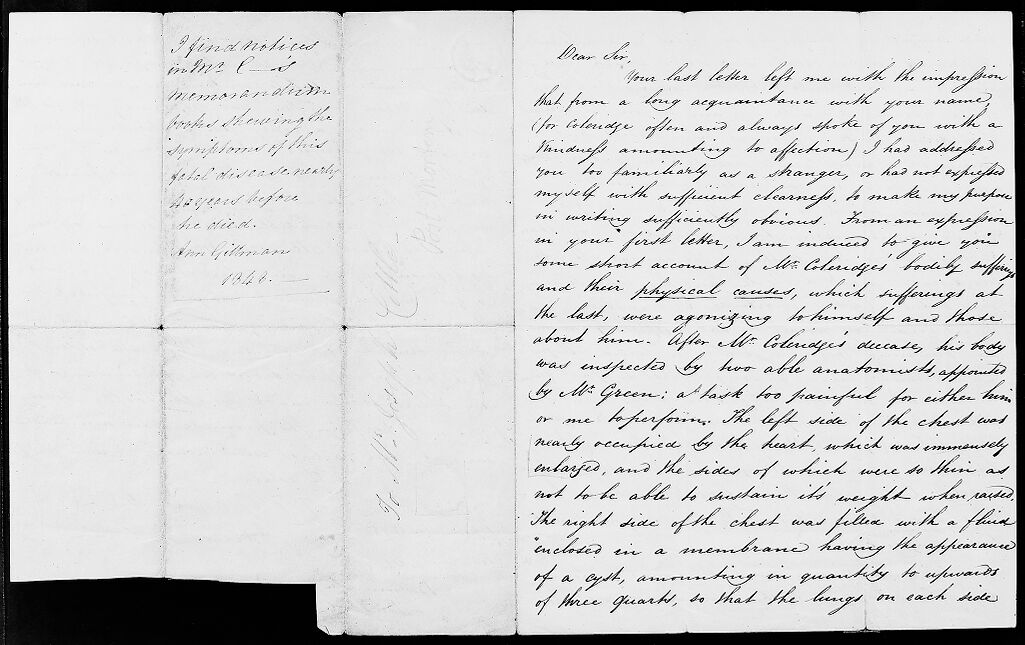 I find notices
in Mr. C—'s
memorandum
books shewing the
symptoms of this
fatal disease, nearly
40 years before
he died.
Ann Gillman
1840.
To Mr. Joseph
Dear Sir,
Your last letter left me with the impression
that from a long acquaintance with your name,
(for Coleridge often and always spoke of you with a
kindness amounting to affection) I had addressed
you too familiarly as a stranger, or had not expressed
myself with sufficient clearness, to make my purpose
in writing sufficiently obvious. From an expression
in your first letter, I am induced to give you
some short account of Mr. Coleridge's bodily sufferings
and their physical causes, which sufferings at
the last, were agonizing to himself and those
about him. After Mr. Coleridge's decease, his body
was inspected by two able anatomists, appointed
by Mr. Green; a task too painful for either him
or me to perform. The left side of the chest was
nearly occupied by the heart, which was immensely
enlarged, and the sides of which were so thin as
not to be able to sustain it's weight when raised.
The right side of the chest was filled with a fluid
enclosed in a membrane having the appearance
of a cyst, amounting in quantity to upwards
of three quarts, so that the lungs on each side